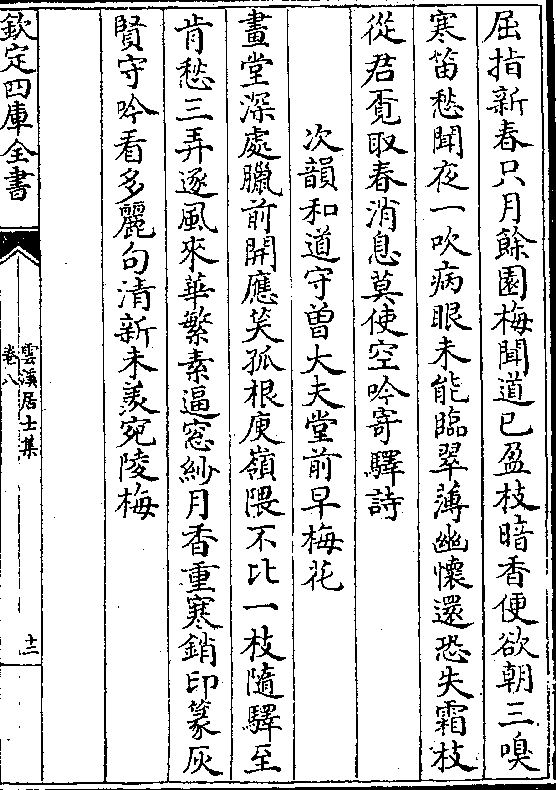 屈指新春只月餘園梅聞道已盈枝暗香便欲朝三嗅
寒笛愁聞夜一吹病眼未能臨翠薄幽懷還恐失霜枝
從君覔取春消息莫使空吟寄驛詩
次韻和道守曽大夫堂前早梅花
畫堂深處臘前開應笑孤根庾嶺隈不比一枝隨驛至
肯愁三弄逐風來華繁素逼窓紗月香重寒銷印篆灰
賢守吟看多麗句清新未羨宛陵梅
欽定四庫全書
雲溪居士集
卷八